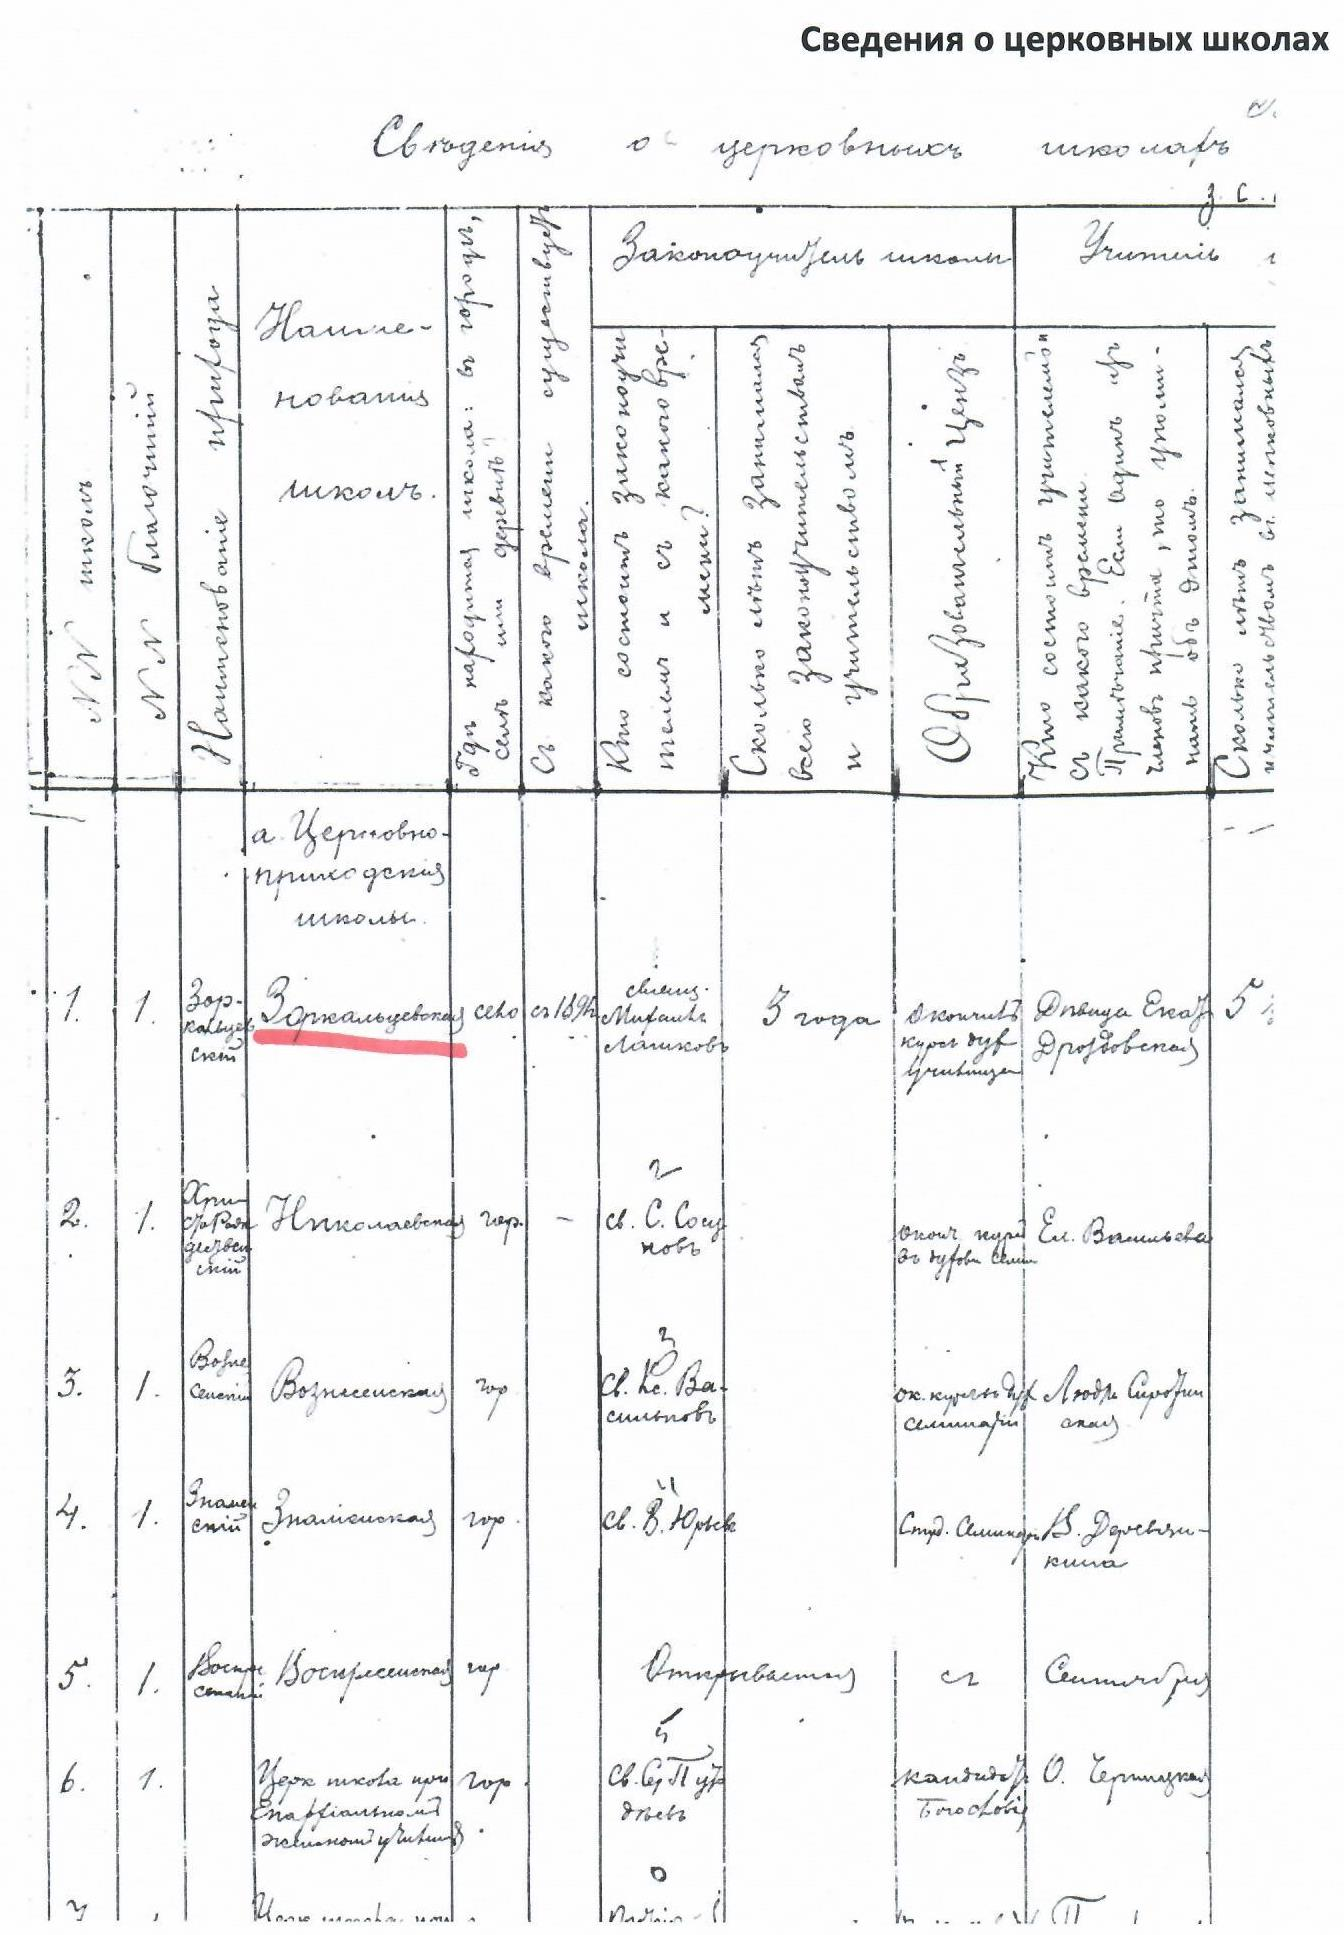 Сведения о церковных школах
Свѣдѣнія о церковныхъ школахъ
з. с.
№№ школъ
№№ Благочиній
Наименованіе прихода
Наиме-
нованія
школъ.
Гдѣ находится школа: въ городѣ,
селѣ или деревнѣ
Съ какого времени существуетъ
школа.
Законоучитель школы
Кто состоитъ законоучи
телемъ и съ какого вре-
мени?
Сколько лѣтъ занимался
всего законоучительствомъ
и учительствомъ
Образовательный Цензъ
Учитель
Кто состоитъ учителемъ
съ какого времени.
Примѣчаніе. Если одинъ изъ
членовъ причта, то упомя-
нать объ этомъ.
Сколько лѣтъ занимался
учительствомъ въ церковныхъ
а. Церковно-
приходскія
школы.
1. 1. Зор-
кальцев
скій
Зоркальцевская село
свящ.
Михаилъ
Лашковъ
3 года
окончилъ
курсъ дух
училища
Дѣвица Екат
Дроздовская
5
2. 1. Хри-
сторож
дествен
скій
Николаевская гор. –
2
св. С. Сосу
новъ
оконч. курс
въ духовн семин
Ел. Васильева
3. 1. Возне
сенскій
Вознесенская гор
3
св. Кс. Ва-
сильковъ
ок. курсъ дух
семинаріи
Людм Сиротин
ская
4. 1. Знамен
скій
Знаменская гор.
св. В. Юрьевъ
Студ. Семинар
В. Деревян-
кина
5. 1. Воскре
сенскій
Воскресенская гор
Открывается съ Сентября
6. 1.
Церк школа при
Епархіальномъ
женскомъ училищѣ
гор.
5
св. Сер Пут
дѣевъ
кандидат
Богословія
О. Черницкая